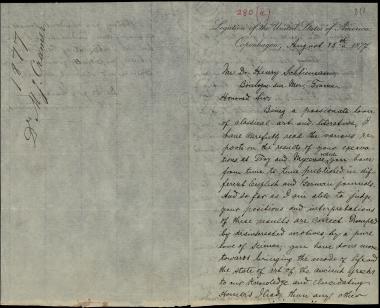 280 (a.)
Legation of the United States of America
Copenhagen, August 15th 1877
Mr. Dr. Henry Schliemann
Boulogne sur Mer, France
Honored Sir,
Being a passionate lover
of classical art and literature, I
have carefully read the various re-
ports on the results of your excava-
tions at Troy and Mycenae, which you have
from time to time published in dif-
ferent English and German journals.
And so far as I am able to judge
your positions and interpretations
of these results are correct. Prompted
by disinterested motives, by a pure
love of Science, you have done more
towards bringing the mode of life and
the state of art of the ancient Greeks
to our knowledge and elucidating
Homer's Iliad, than any other
1877
Dr M. J. Cramer